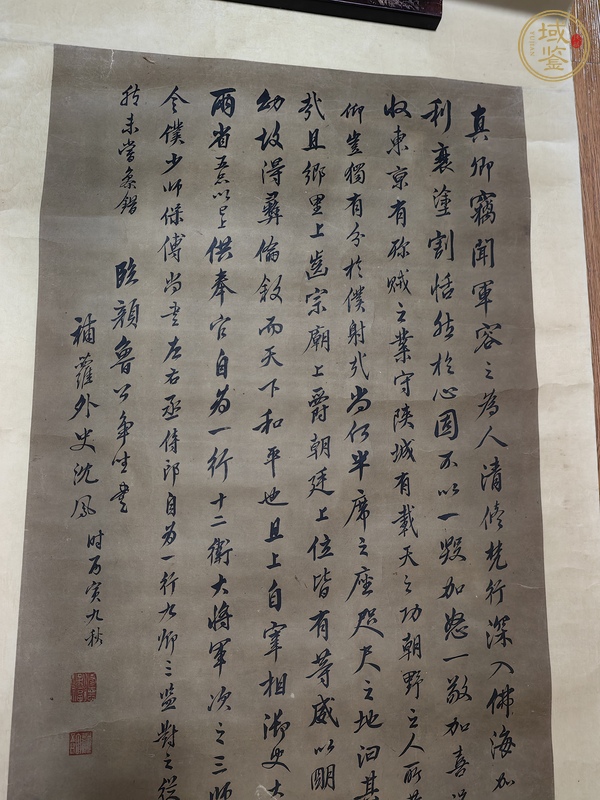 真卿竊聞軍容之為人清修梵行深入佛海加
利襄塗割恬然於心固不以一毀加怒一敬加喜
收東京有殄賊之業守陜城有戴天之功朝野之人所共
仰豈獨有分於僕射哉尚何半席之座咫尺之地汩其
哉且鄉里上齒宗廟上爵朝廷上位皆有等威以明
幼故得彝倫敘而天下和平也且上自宰相御史大
兩省五品以上供奉官自為一行十二衛大將軍次之三師
令僕少師保傅尚書左右丞侍郎自為一行九卿三監對之從
然未嘗參錯
臨顏魯公爭坐書
補蘿外史沈鳳
時丙寅九秋
域鑒